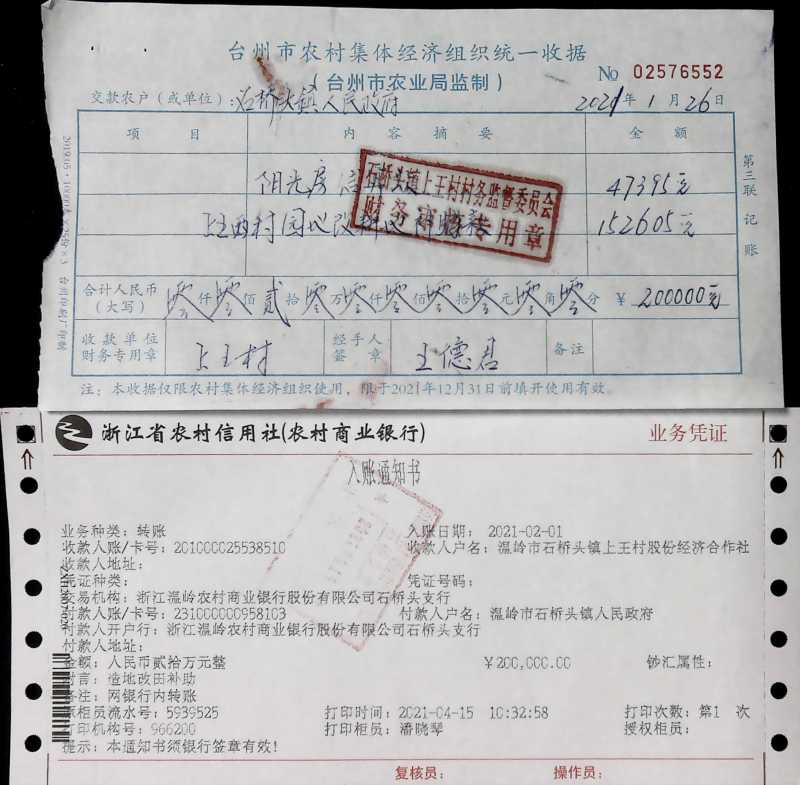 台州市农村集体经济组织统一收据
(台州市农业局监制)
No 02576552
交款农户(或单位):石桥头镇人民政府 2021年1月26日
项目 内容摘要 金额
阳光房 47395元
园地改耕地 152605元
石桥头镇上王村村务监督委员会
财务审核专用章
合计人民币(大写) 零仟零佰贰拾零万零仟零佰零拾零元零角零分 ¥200000元
收款单位财务专用章 上王村 经手人签章 王德君 备注
注:本收据仅限农村集体经济组织使用,限于2021年12月31日前填开使用有效。
第三联 记账
浙江省农村信用社(农村商业银行) 业务凭证
入账通知书
业务种类:转账 入账日期: 2021-02-01
收款人账/卡号:201000025538510 收款人户名:温岭市石桥头镇上王村股份经济合作社
收款人地址:
凭证种类: 凭证号码:
交易机构:浙江温岭农村商业银行股份有限公司石桥头支行
付款人账/卡号:231000000958103 付款人户名:温岭市石桥头镇人民政府
付款人开户行:浙江温岭农村商业银行股份有限公司石桥头支行
付款人地址:
金额:人民币贰拾万元整 ¥200,000.00 钞汇属性:
附言:造地改田补助
备注:网银行内转账
原柜员流水号:5939525 打印时间:2021-04-15 10:32:58 打印次数:第1 次
打印机构号:966200 打印柜员:潘晓琴 授权柜员:
提示:本通知书须银行签章有效!
复核员: 操作员: